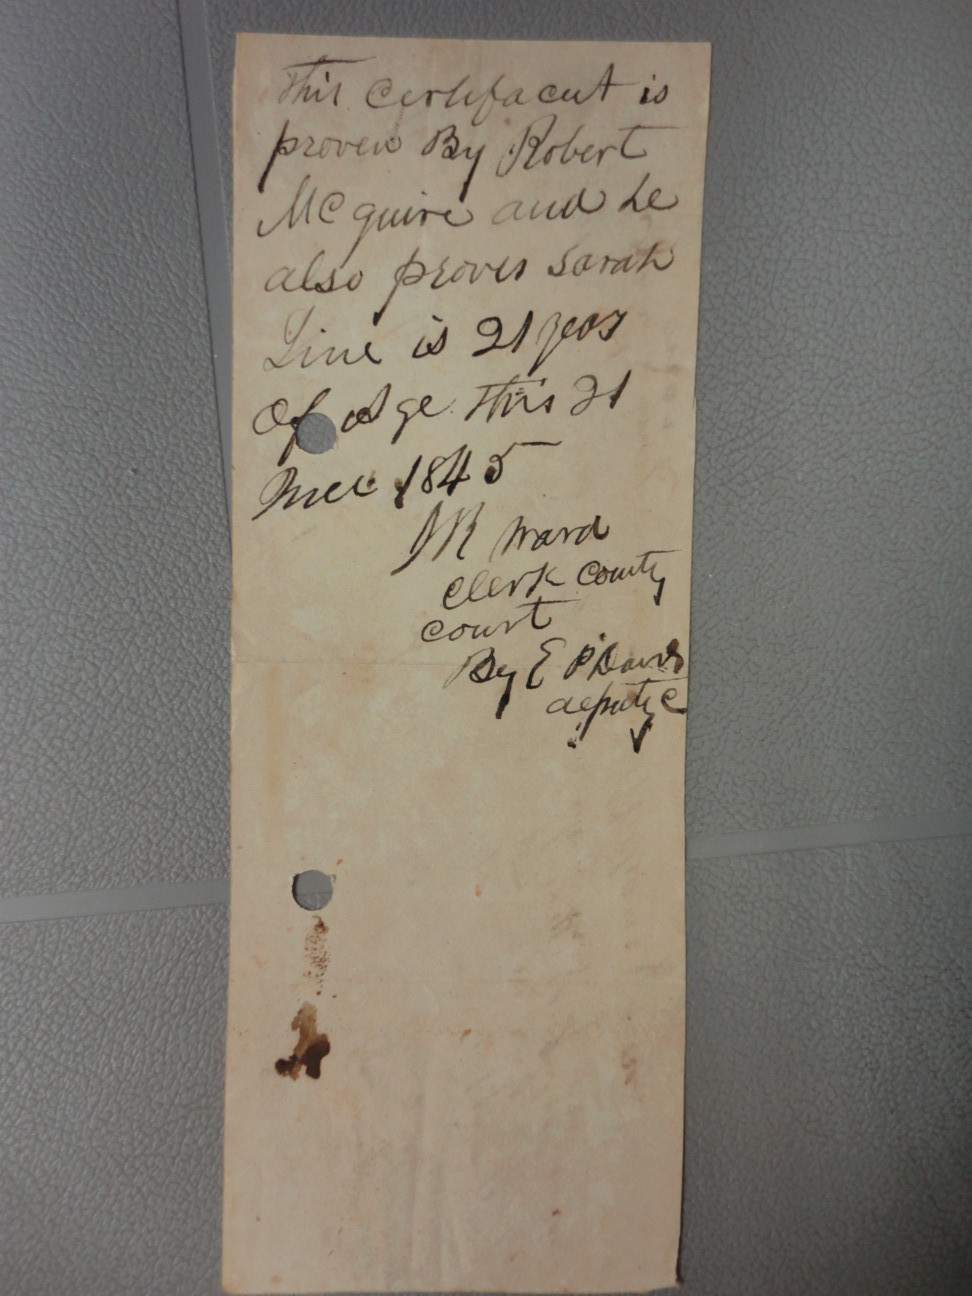 This Certifacut is
proven By Robert
McGuire and he
also proves Sarah
Line is 21 years
Of Age This 21
1845
JR Ward
Clerk County
Court
By E P Davis
deputy C